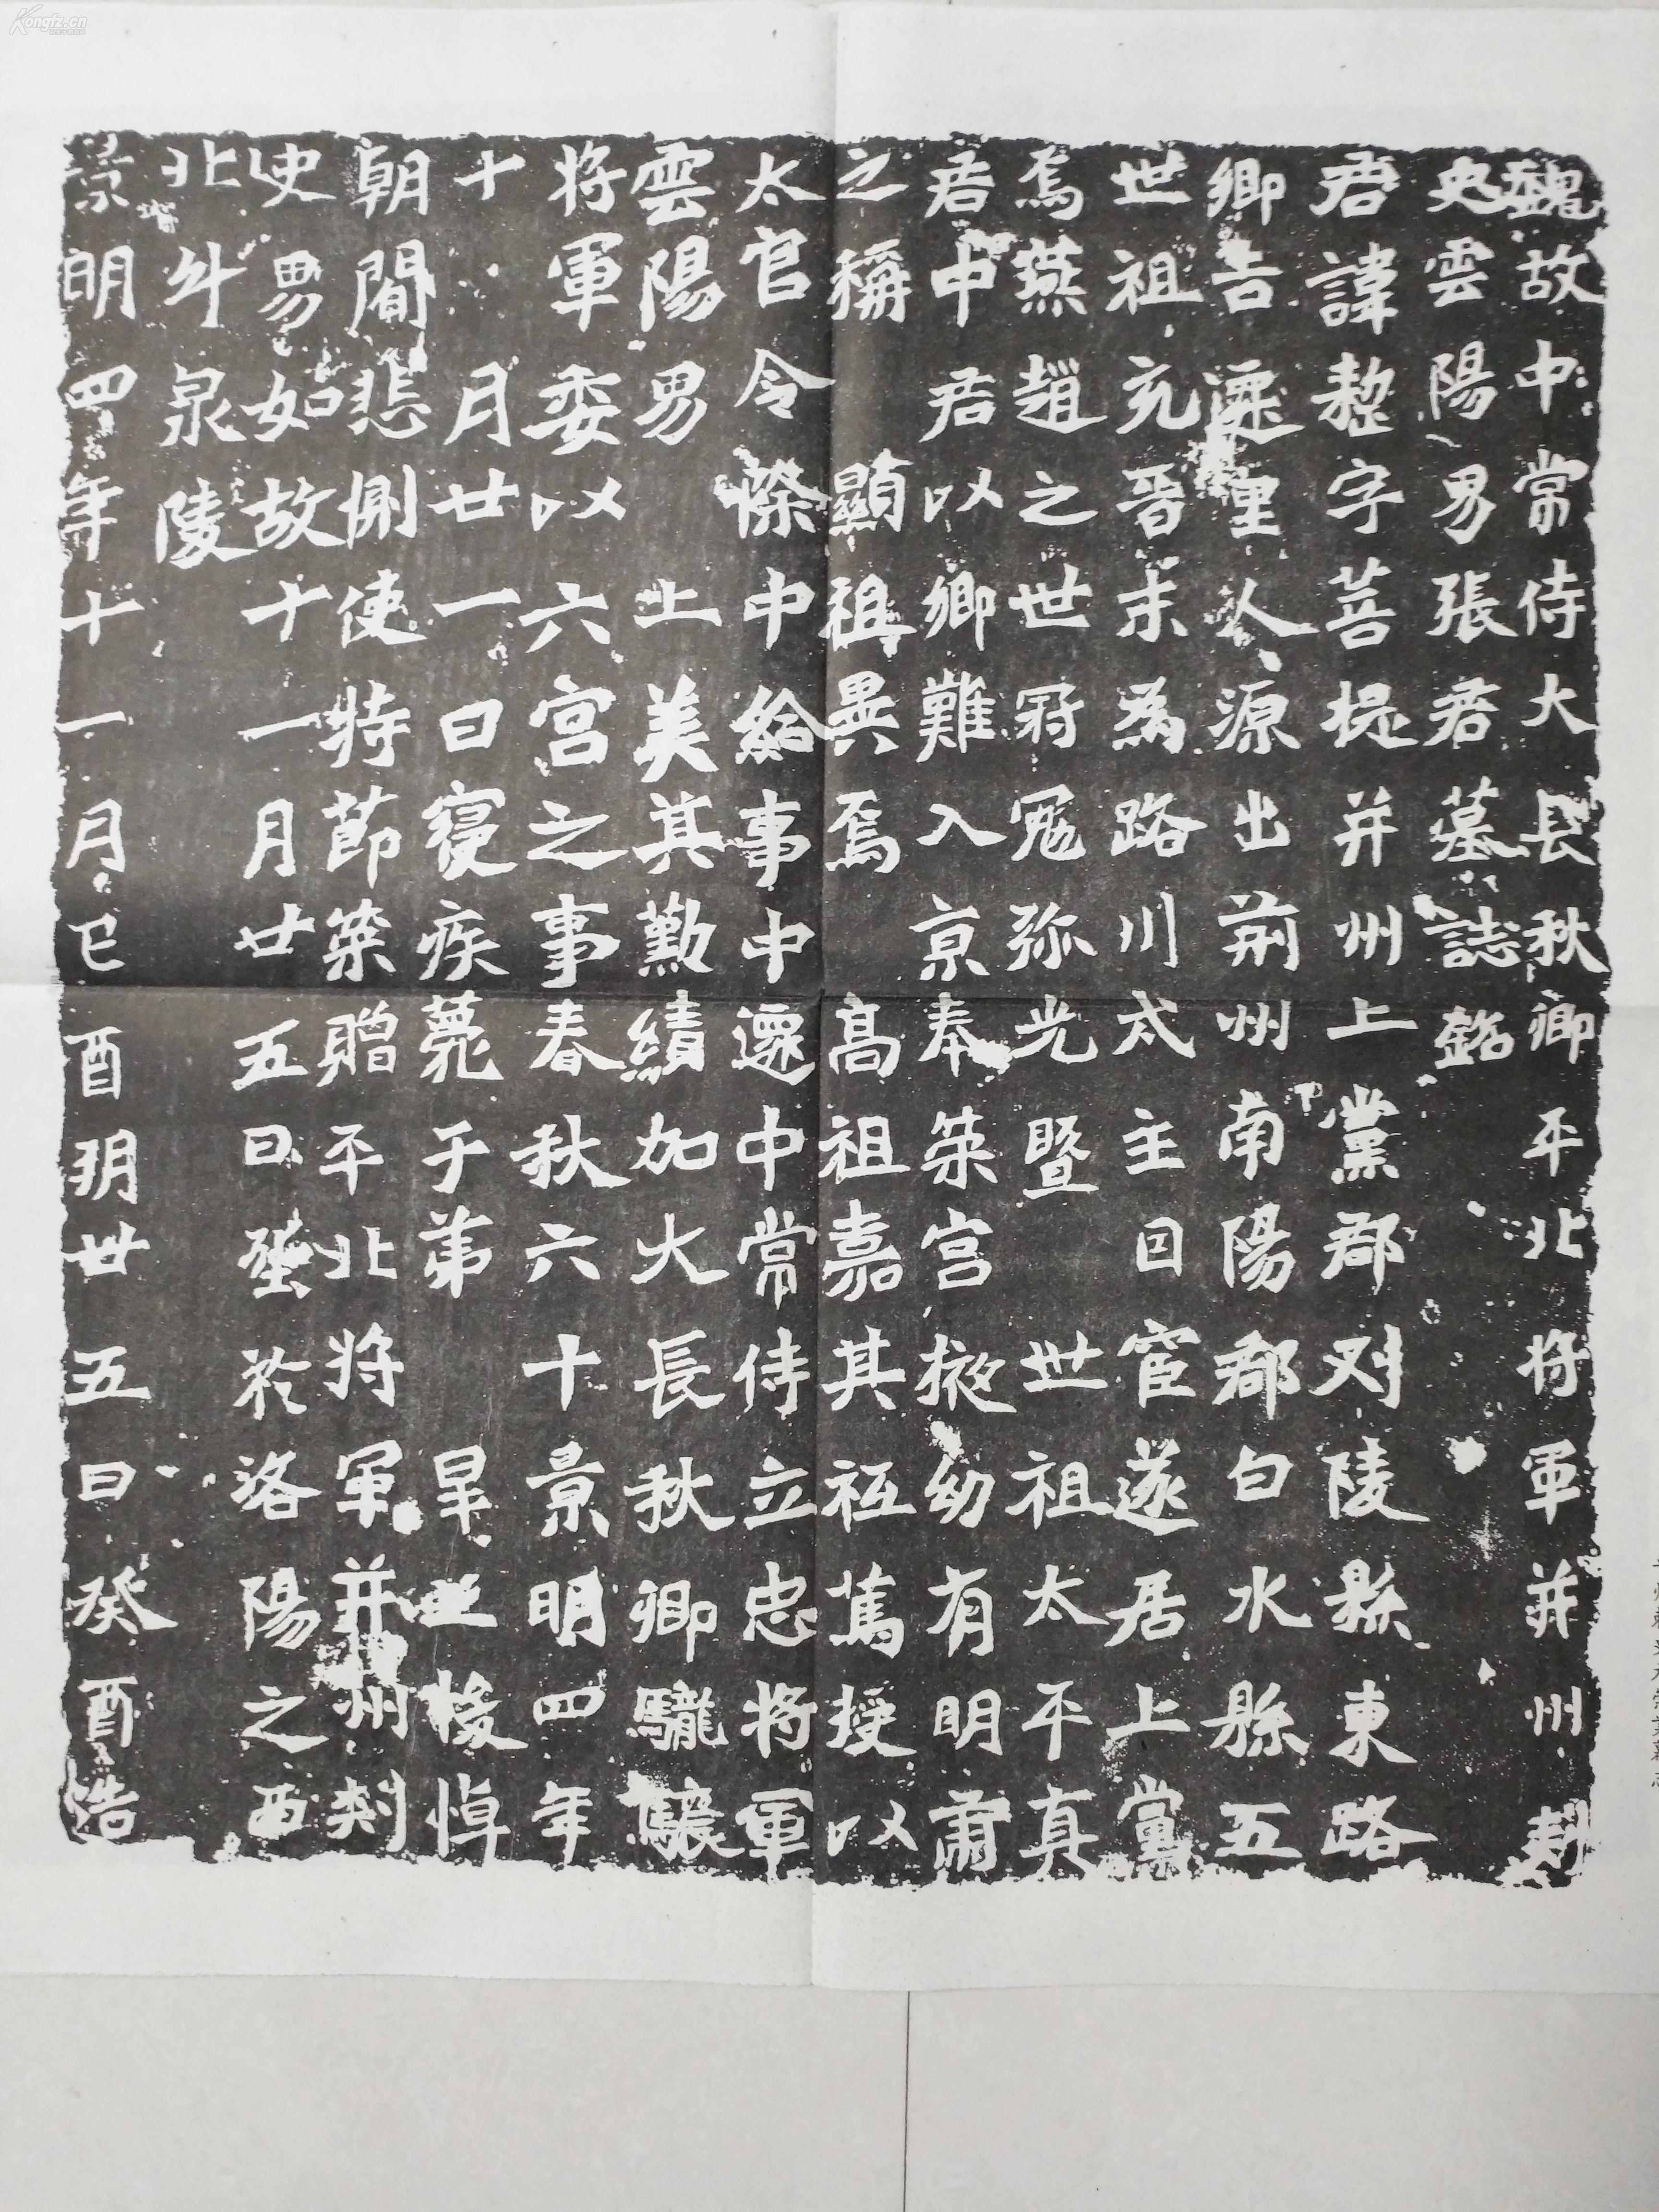 魏故中常侍大長秋卿平北將軍并州刺
史雲陽男張君墓誌銘
君諱整字菩提并州上黨郡刈陵縣東路
鄉吉遷里人源出荊州南陽郡白水縣五
世祖充晉末為路川太守因宦遂居上黨
焉燕趙之世世冠冕弥光暨 世祖太平真
君中君以鄉難入京奉策宮掖幼有明肅
之稱 顯祖異焉 高祖嘉其祗篤授以
太官令除中給事中遷中常侍立忠將軍
雲陽男 上美其勤績加大長秋卿驍驤
將軍委以六宮之事春秋六十景明四年
十月廿一日寢疾薨于第 旱上悛悼
朝閒悲惻使持節榮贈平北將軍并州刺
史男如故十一月廿五日窆於洛陽之西
北斗泉陵
景明四年十一月己酉朔廿五日癸酉造
Kongfz.cn